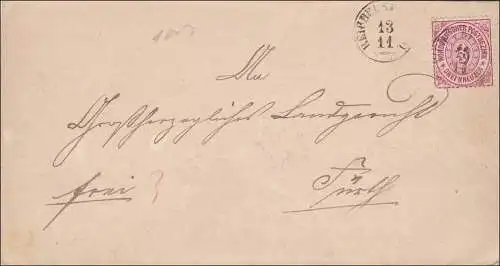 13
11
NORDDEUTSCHER POSTBEZIRK
3
DREI KREUZER
An
Großherzogliches Landgericht
frei
Fürth